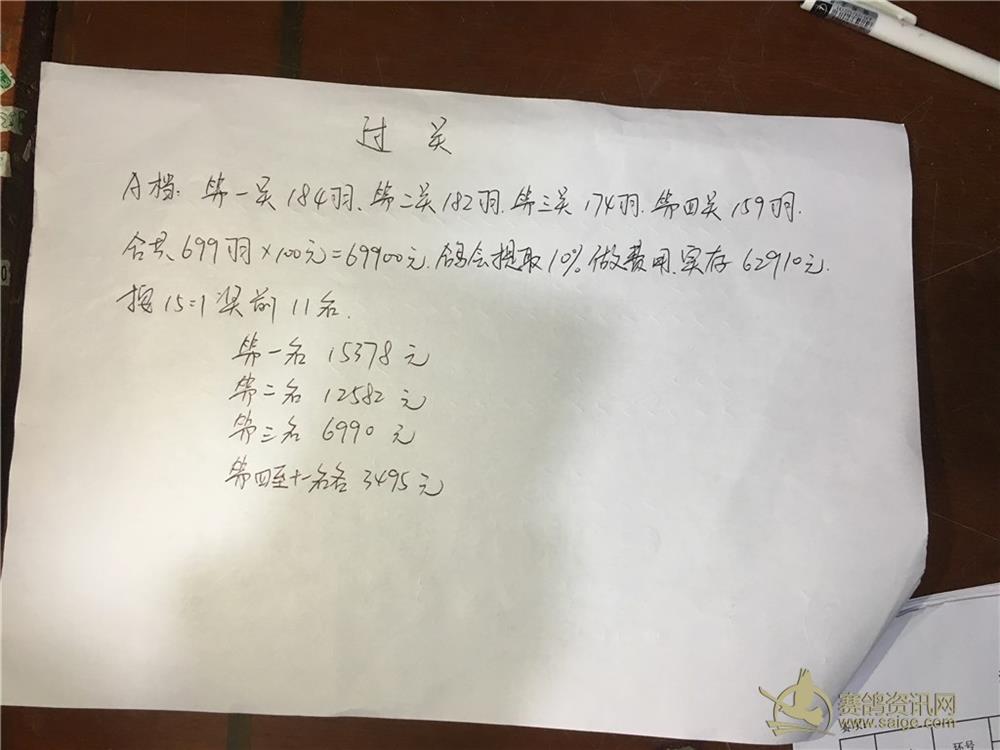 过关
A档：第一关184羽、第二关182羽.第三关174羽.第四关159羽.
合共699羽×100元=69900元.鸽会提取10%做费用.实存62910元.
按15:1奖前11名.
第一名 15378元
第二名 12582元
第三名 6990元
第四至十一名各 3495元
赛鸽资讯网
www.saige.com
环号